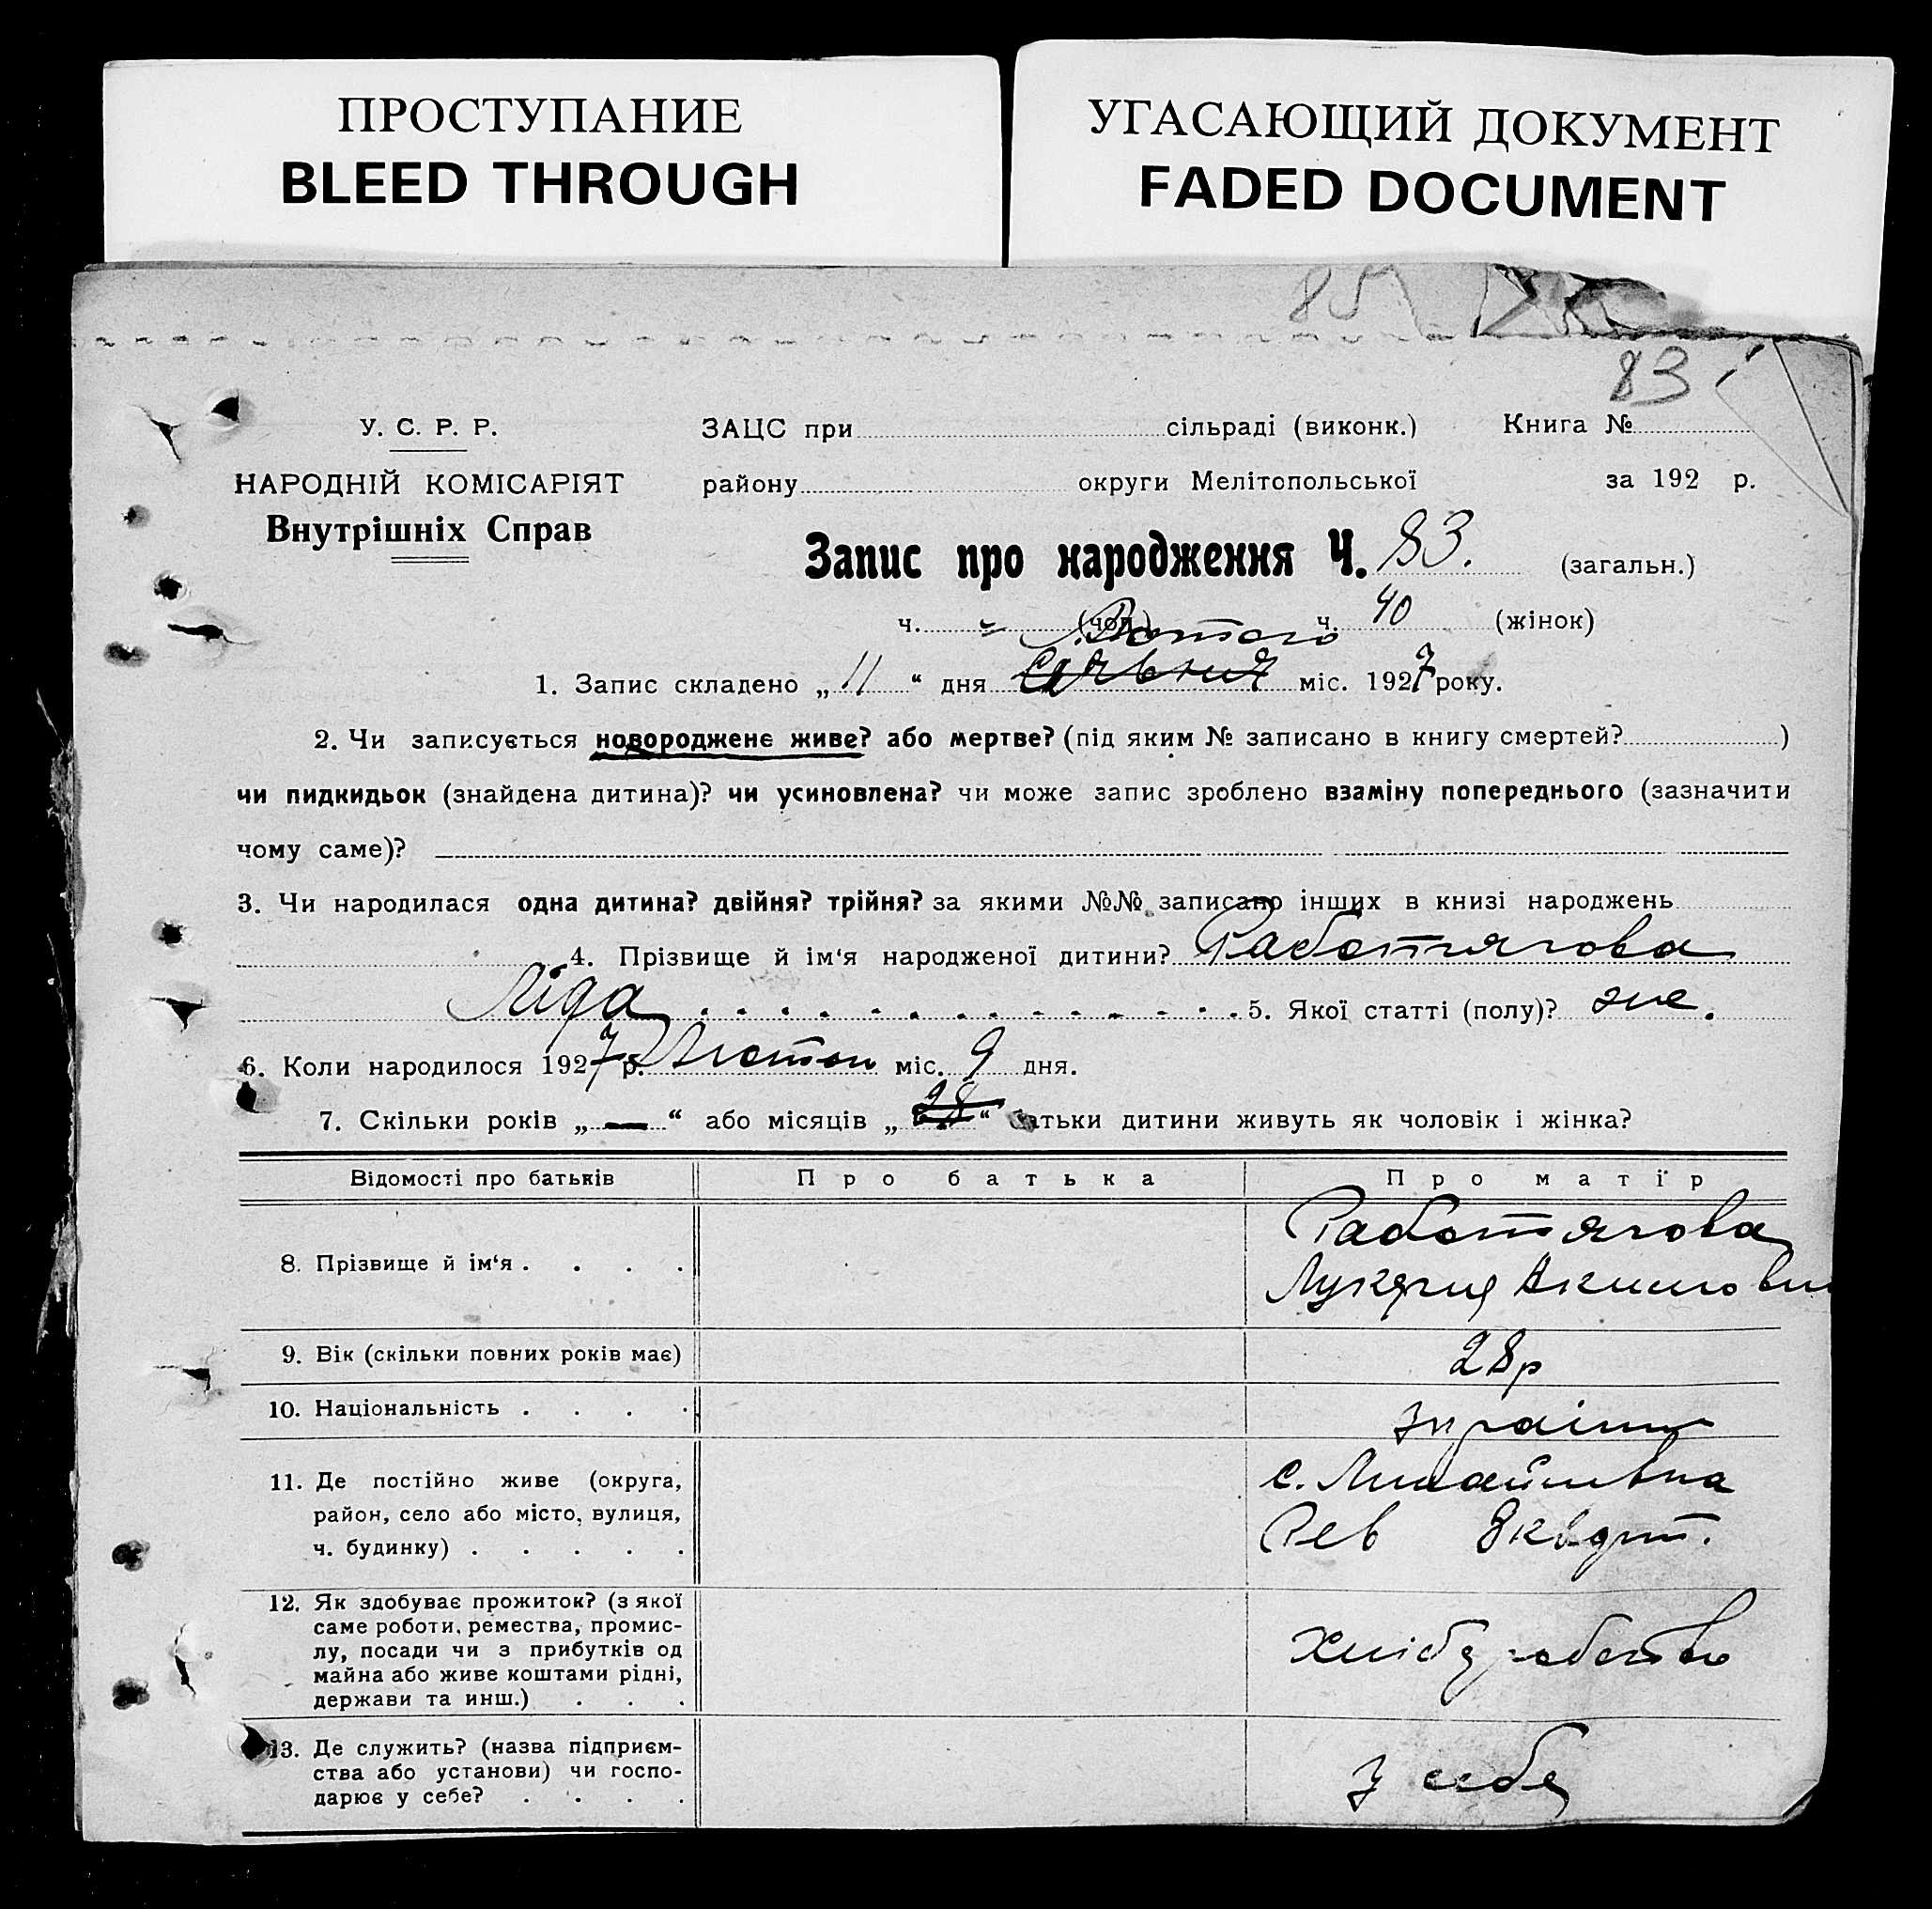 ПРОСТУПАНИЕ
BLEED THROUGH
УГАСАЮЩИЙ ДОКУМЕНТ
FADED DOCUMENT
85
83
У. С. Р. Р.
НАРОДНІЙ КОМІСАРІЯТ
Внутрішніх Справ
ЗАЦС при сільраді (виконк.) Книга №
району округи Мелітопольської за 192 р.
Запис про народження Ч. 83. (загальн.)
ч. (чол.) ч. 40 (жінок)
Лютого
1. Запис складено „ 11 “ дня Січьния міс. 1927 року.
2. Чи записується новороджене живе? або мертве? (під яким № записано в книгу смертей? )
чи пидкидьок (знайдена дитина)? чи усиновлена? чи може запис зроблено взаміну попереднього (зазначити
чому саме)?
3. Чи народилася одна дитина? двійня? трійня? за якими №№ записано інших в книзі народжень
4. Прізвище й ім‘я народженої дитини? Работягова
Ліда 5. Якої статті (полу)? жіе.
6. Коли народилося 1927 р. Лютого міс. 9 дня.
7. Скільки років „ — “ або місяців „ 28 “ батьки дитини живуть як чоловік і жінка?
Відомості про батьків Про батька Про матір
8. Прізвище й ім‘я . . . . Работягова
Лукерия Акимовн
9. Вік (скільки повних років має) 28р
10. Національність . . . . україн
11. Де постійно живе (округа,
район, село або місто, вулиця,
ч. будинку) . . . . .
с. Михайлівка
Рев
12. Як здобуває прожиток? (з якої
саме роботи, ремества, промис-
лу, посади чи з прибутків од
майна або живе коштами рідні,
держави та инш.) . . .
Хлібуробство
13. Де служить? (назва підприєм-
ства або установи) чи госпо-
дарює у себе? . . . .
У себе